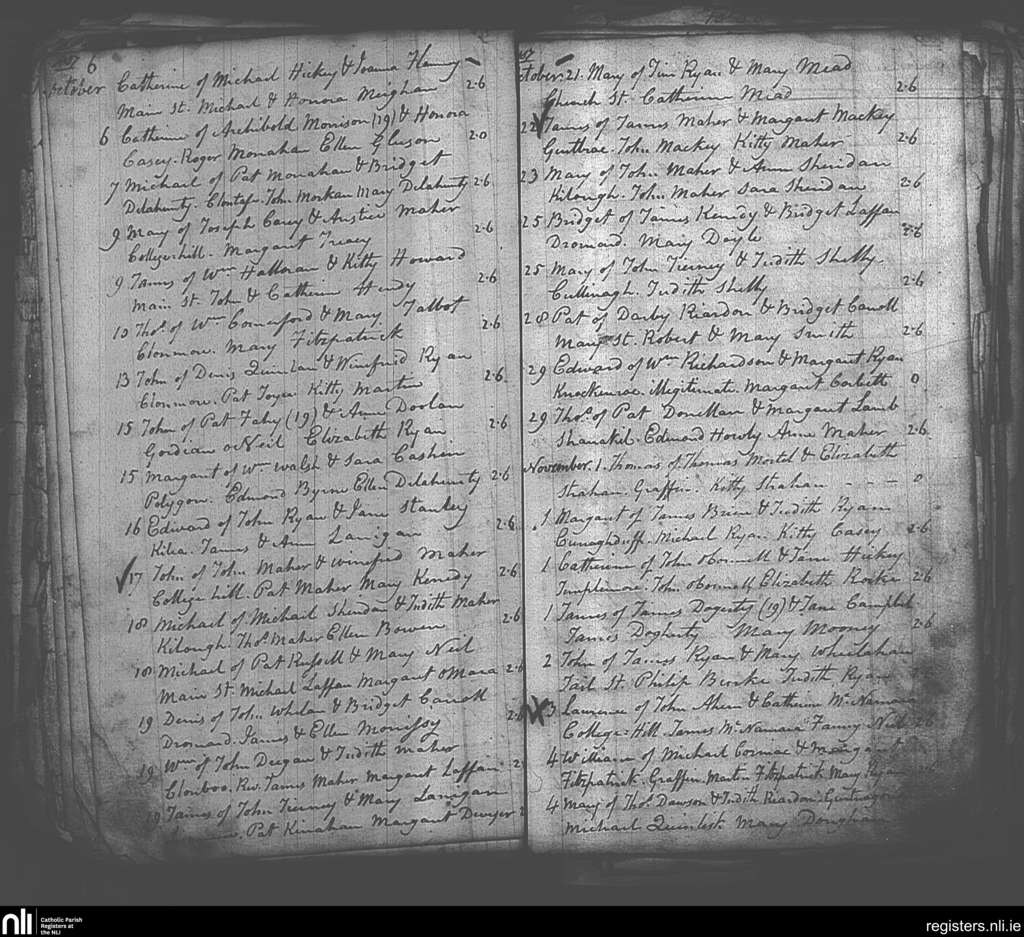 October 6 Catherine of Michael Hickey & Joanna Flenny
Main St. Michael & Honora Meighan 2-6
6 Catherine of Archibold Morrison (19) & Honora
Casey. Roger Monahan Ellen Gleeson 2-0
7 Michael of Pat Monahan & Bridget
Delahunty. John Morkan Mary Delahunty 2-6
9 Mary of Joseph Carey & Anstice Maher
College-hill. Margaret Treacy 2-6
9 James of Wm Halloran & Kitty Howard
Main St. John & Catherine Hendy 2-6
10 Thos. of Wm Comerford & Mary Talbot
Clonmore. Mary Fitzpatrick 2-6
13 John of Denis Quinlan & Winefrid Ryan
Clonmore. Pat Joyce Kitty Martin 2-6
15 John of Pat Fahy (19) & Anne Doolan
Gordian o Neil Elizabeth Ryan 2-6
15 Margaret of Wm Walsh & Sara Cashin
Polygon. Edmond Byrne Ellen Delahunty 2-6
16 Edward of John Ryan & Jane Stankey
Kilea. James & Anne Lanigan 2-6
17 John of John Maher & Winefred Maher
College hill. Pat Maher Mary Kenedy 2-6
18 Michael of Michael Sheridan & Judith Maher
Kilough. Thos. Maher Ellen Bowen 2-6
18 Michael of Pat Russell & Mary Neil
Main St. Michael Laffan Margaret oMara 2-6
19 Denis of John Whelan & Bridget Carroll
Dromard. James & Ellen Morrissy 2-6
19 Wm of John Deegan & Judith Maher
Clonboo. Rev. James Maher Margaret Laffan
19 James of John Tierney & Mary Lanigan
Pat Kinahan Margaret Dwyer
October. 21. Mary of Tim Ryan & Mary Mead
Church St. Catherine Mead 2-6
22 James of James Maher & Margaret Mackey
John Mackey Kitty Maher 2-6
23 Mary of John Maher & Anne Sheridan
Kilough. John Maher Sara Sheridan 2-6
25 Bridget of James Kenedy & Bridget Laffan
Dromard. Mary Doyle 2-6
25 Mary of John Tierney & Judith Shelly.
Cullinagh. Judith Shelly 2-6
28 Pat of Darby Riardon & Bridget Carroll
Mary St. Robert & Mary Smith 2-6
29 Edward of Wm Richardson & Margaret Ryan
Illegitimate. Margaret Corbett 0
29 Thos. of Pat Donellan & Margaret Lamb
Shanakil. Edmond Howly Anne Maher 2-6
November. 1. Thomas of Thomas Mortel & Elizabeth
Strahan. Graffin. Kitty Strahan - - - 0
1 Margaret of James Brien & Judith Ryan
Michael Ryan Kitty Casey 2-6
1 Catherine of John oConnell & Jane Hickey
Templemore. John oConnell Elizabeth Rorke 2-6
1 James of James Dogerty (19) & Jane Campbel
James Dogherty Mary Mooney 2-6
2 John of James Ryan & Mary Wheelahan
Jail St. Philip Burke Judith Ryan
3 Laurence of John Ahern & Catherine McNamara
College-Hill. James McNamara Fanny Neil 2-6
4 William of Michael Cormac & Margaret
Fitzpatrick. Graffin. Martin Fitzpatrick Mary Ryan
4 Mary of Thos. Dawson & Judith Reardon
Michael Quinlisk Mary
nli Catholic Parish
Registers at
the NLI
registers.nli.ie